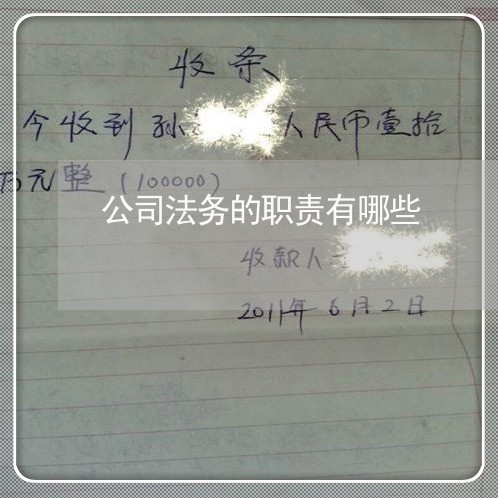 收条
今收到孙 人民币壹拾
万元整(100000)
公司法务的职责有哪些
收款人
2011年6月2日